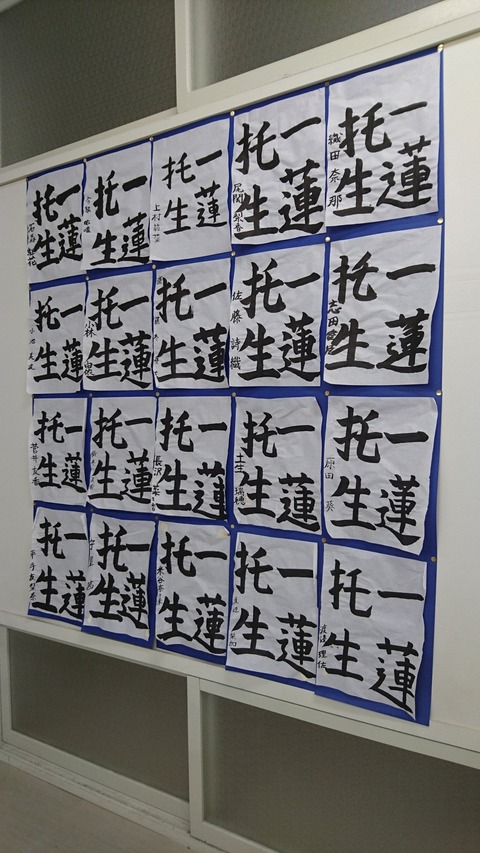 一蓮
托生
石森 虹花
一蓮
托生
一蓮
托生
上村 莉菜
一蓮
托生
尾関 梨香
一蓮
托生
織田 奈那
一蓮
托生
小池 美波
一蓮
托生
小林 由依
一蓮
托生
一蓮
托生
佐藤 詩織
一蓮
托生
志田 愛佳
一蓮
托生
菅井 友香
一蓮
托生
一蓮
托生
長沢 菜々香
一蓮
托生
土生 瑞穂
一蓮
托生
原田 葵
一蓮
托生
平手 友梨奈
一蓮
托生
守屋 茜
一蓮
托生
米谷 奈々未
一蓮
托生
一蓮
托生
渡邉 理佐